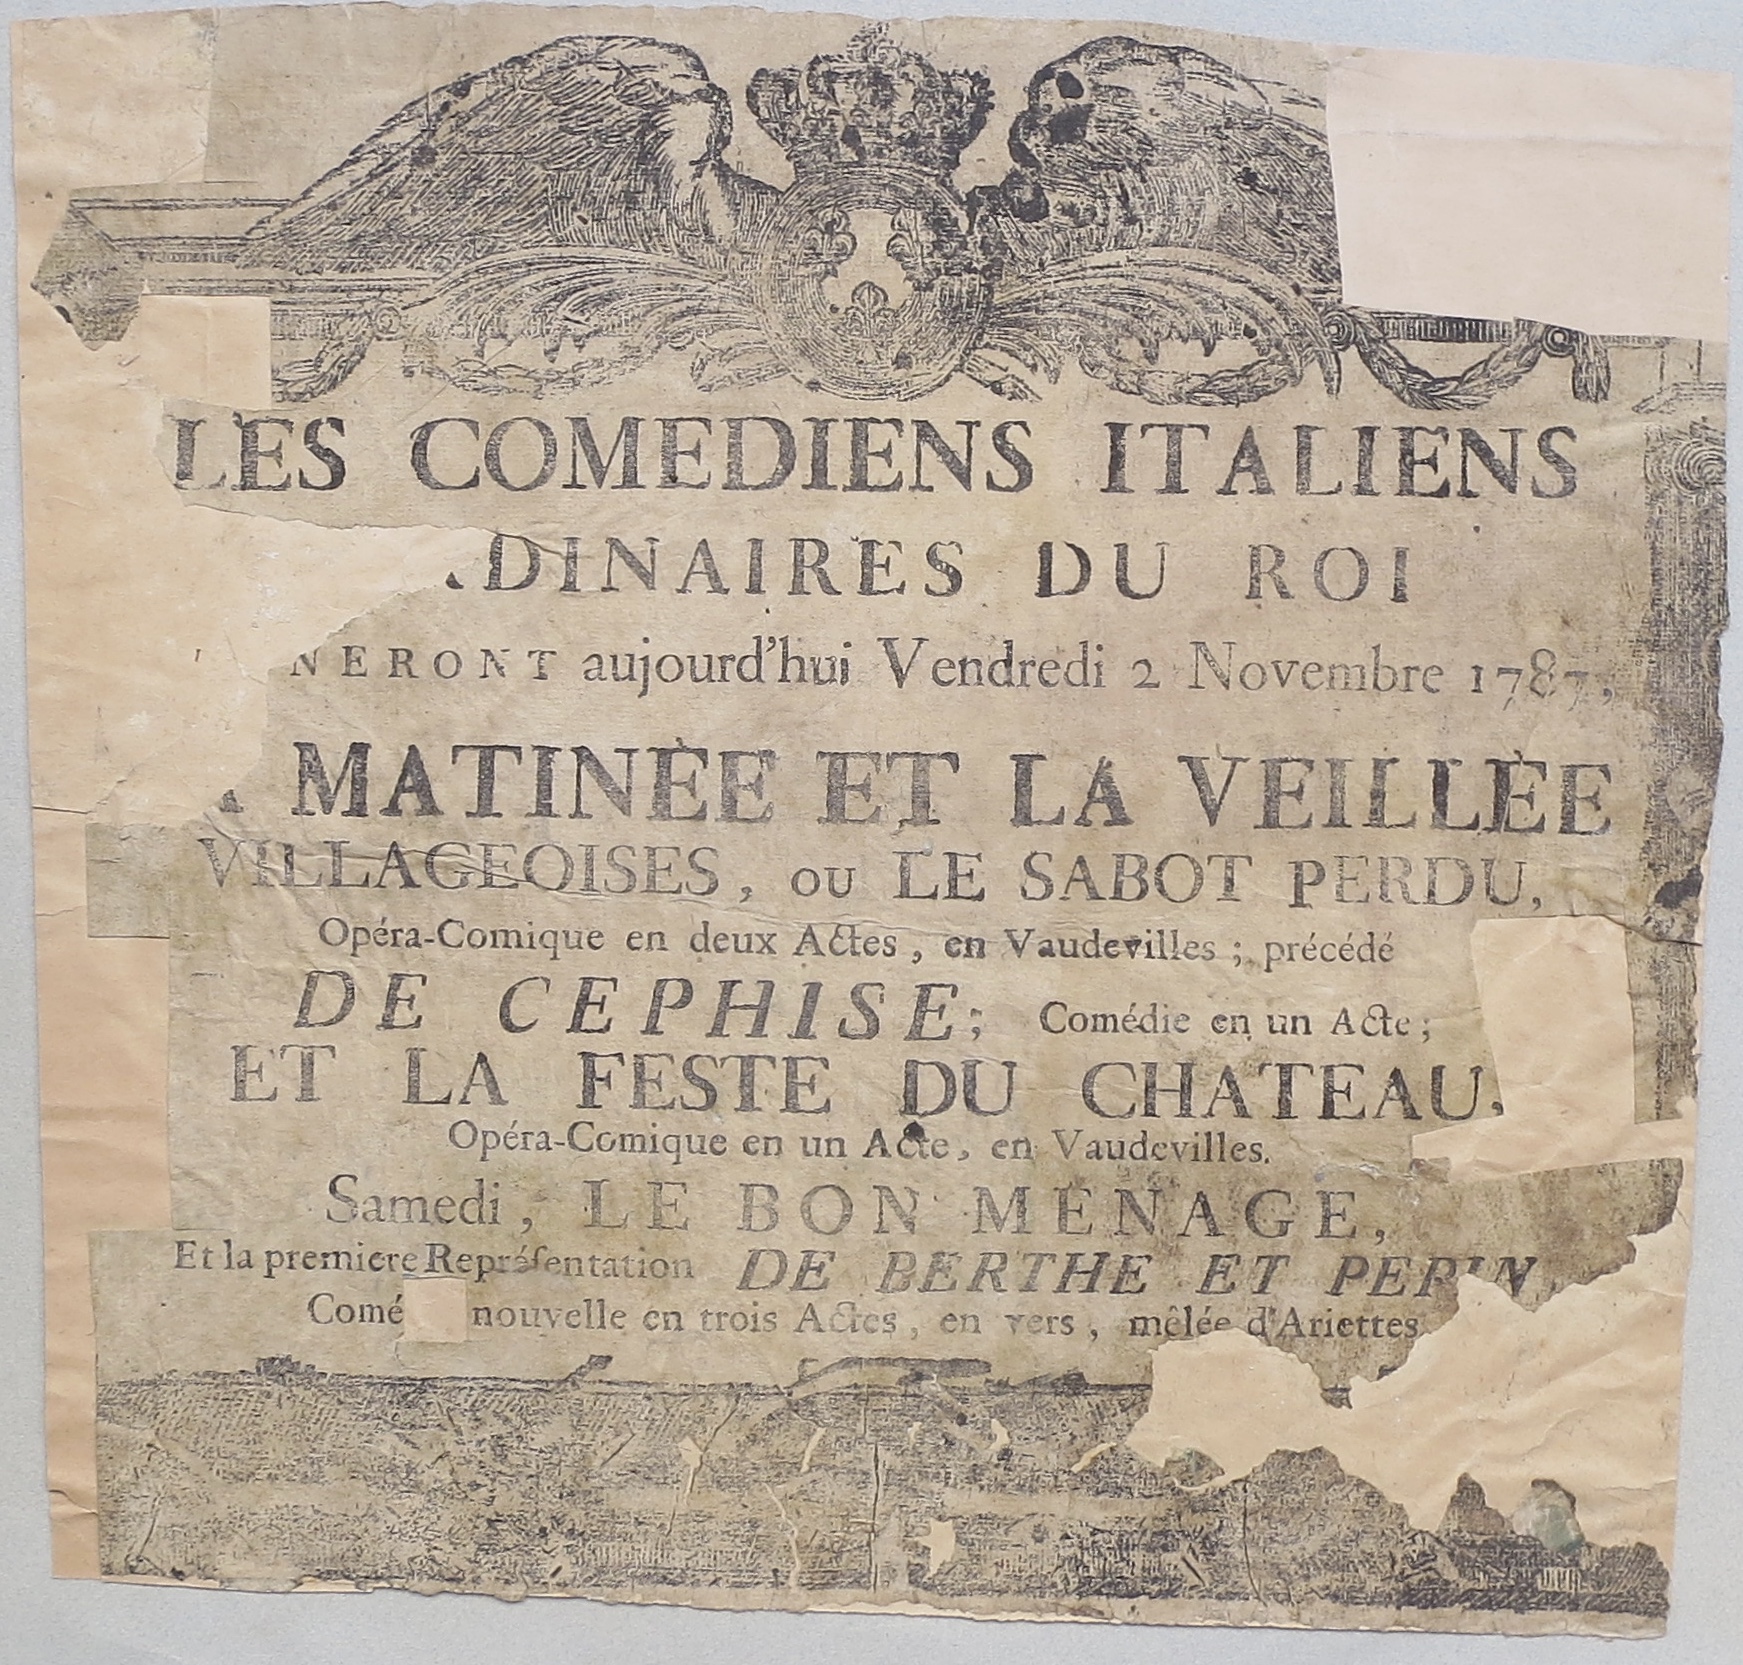 LES COMEDIENS ITALIENS
DINAIRES DU ROI
NERONT aujourd'hui Vendredi 2 Novembre 1787,
MATINÉE ET LA VEILLÉE
VILLAGEOISES, ou LE SABOT PERDU,
Opéra-Comique en deux Actes, en Vaudevilles; précédé
DE CEPHISE; Comédie en un Acte;
ET LA FESTE DU CHATEAU,
Opéra-Comique en un Acte, en Vaudevilles.
Samedi, LE BON MENAGE,
Et la premiere Repréſentation DE BERTHE ET PEPIN
Comé nouvelle en trois Actes, en vers, mêlée d'Ariettes